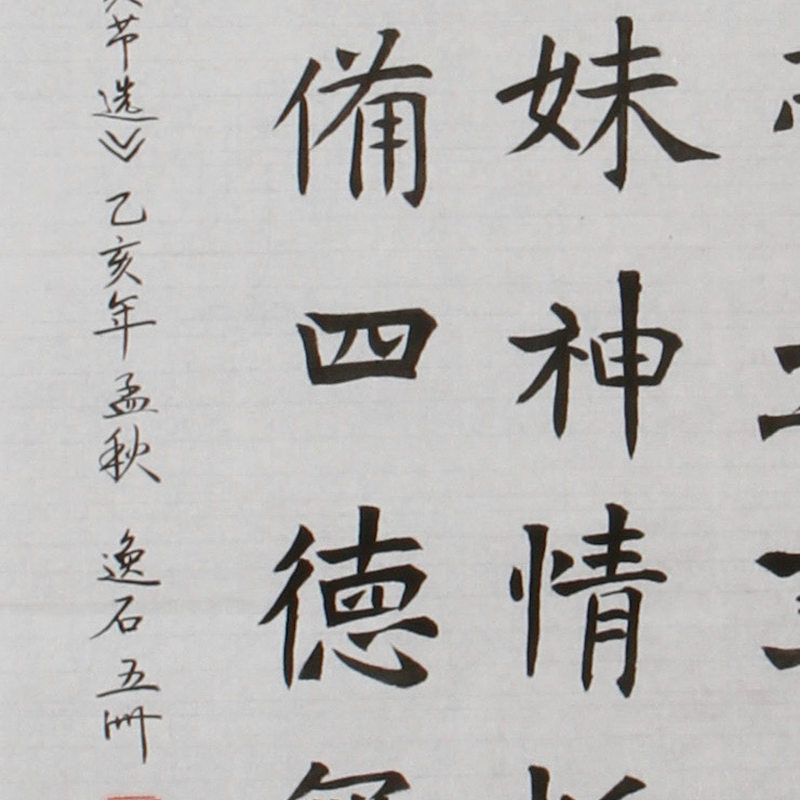 妹神情
備四德
节选》乙亥年孟秋 逸石五州